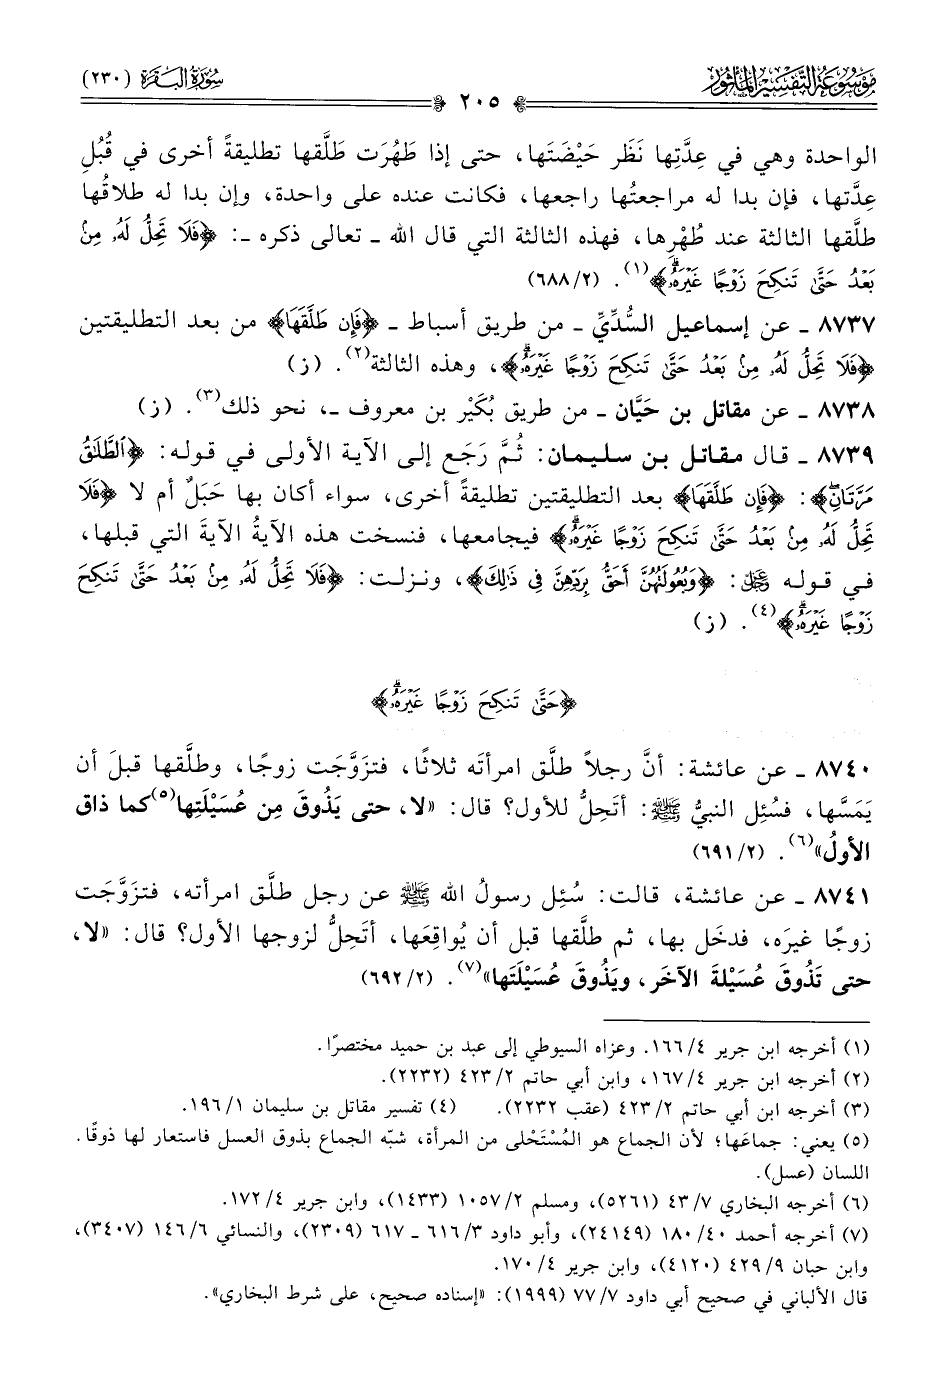 مَوْسُوعَة التَّفْسِير المَأْثُور
سُورَةُ البَقَرَة (٢٣٠)
٢٠٥
الواحدة وهي في عِدَّتِها نَظَر حَيْضَتَها، حتى إذا طَهُرَت طَلَّقها تطليقةً أخرى في قُبُلِ
عِدَّتها، فإن بدا له مراجعتُها راجعها، فكانت عنده على واحدة، وإن بدا له طلاقُها
طلَّقها الثالثة عند طُهْرِها، فهذه الثالثة التي قال الله ـ تعالى ذكره ـ: ﴿فَلَا تَحِلُّ لَهُۥ مِنۢ
بَعْدُ حَتَّىٰ تَنكِحَ زَوْجًا غَيْرَهُۥۗ﴾(١). (٦٨٨/٢)
٨٧٣٧ ـ عن إسماعيل السُّدِّيِّ ـ من طريق أسباط ـ ﴿فَإِن طَلَّقَهَا﴾ من بعد التطليقتين
﴿فَلَا تَحِلُّ لَهُۥ مِنۢ بَعْدُ حَتَّىٰ تَنكِحَ زَوْجًا غَيْرَهُۥۗ﴾، وهذه الثالثة(٢). (ز)
٨٧٣٨ ـ عن مقاتل بن حَيَّان ـ من طريق بُكَيْر بن معروف ـ، نحو ذلك(٣). (ز)
٨٧٣٩ ـ قال مقاتل بن سليمان: ثُمَّ رَجَع إلى الآية الأولى في قوله: ﴿ٱلطَّلَٰقُ
مَرَّتَانِۖ﴾: ﴿فَإِن طَلَّقَهَا﴾ بعد التطليقتين تطليقةً أخرى، سواء أكان بها حَبَلٌ أم لا ﴿فَلَا
تَحِلُّ لَهُۥ مِنۢ بَعْدُ حَتَّىٰ تَنكِحَ زَوْجًا غَيْرَهُۥۗ﴾ فيجامعها، فنسخت هذه الآيةُ الآيةَ التي قبلها،
في قوله ﷻ: ﴿وَبُعُولَتُهُنَّ أَحَقُّ بِرَدِّهِنَّ فِي ذَٰلِكَ﴾، ونزلت: ﴿فَلَا تَحِلُّ لَهُۥ مِنۢ بَعْدُ حَتَّىٰ تَنكِحَ
زَوْجًا غَيْرَهُۥۗ﴾(٤). (ز)
﴿حَتَّىٰ تَنكِحَ زَوْجًا غَيْرَهُۥۗ﴾
٨٧٤٠ ـ عن عائشة: أنَّ رجلاً طلَّق امرأتَه ثلاثًا، فتزَوَّجَت زوجًا، وطلَّقها قبلَ أن
يَمَسَّها، فسُئِل النبيُّ ﷺ: أتَحِلُّ للأول؟ قال: «لا، حتى يَذُوقَ مِن عُسَيْلَتِها(٥)كما ذاق
الأولُ»(٦). (٦٩١/٢)
٨٧٤١ ـ عن عائشة، قالت: سُئِل رسولُ الله ﷺ عن رجل طلَّق امرأته، فتزوَّجَت
زوجًا غيرَه، فدخَل بها، ثم طلَّقها قبل أن يُواقِعَها، أتَحِلُّ لزوجها الأول؟ قال: «لا،
حتى تَذُوقَ عُسَيْلةَ الآخَر، ويَذُوقَ عُسَيْلَتَها»(٧). (٦٩٢/٢)
(١) أخرجه ابن جرير ٤/ ١٦٦. وعزاه السيوطي إلى عبد بن حميد مختصرًا.
(٢) أخرجه ابن جرير ٤/ ١٦٧، وابن أبي حاتم ٢/ ٤٢٣ (٢٢٣٢).
(٣) أخرجه ابن أبي حاتم ٢/ ٤٢٣ (عقب ٢٢٣٢). (٤) تفسير مقاتل بن سليمان ١/ ١٩٦.
(٥) يعني: جماعَها؛ لأن الجماع هو المُسْتَحْلى من المرأة، شبّه الجماع بذوق العسل فاستعار لها ذوقًا.
اللسان (عسل).
(٦) أخرجه البخاري ٧/ ٤٣ (٥٢٦١)، ومسلم ٢/ ١٠٥٧ (١٤٣٣)، وابن جرير ٤/ ١٧٢.
(٧) أخرجه أحمد ٤٠/ ١٨٠ (٢٤١٤٩)، وأبو داود ٣/ ٦١٦ ـ ٦١٧ (٢٣٠٩)، والنسائي ٦/ ١٤٦ (٣٤٠٧)،
وابن حبان ٩/ ٤٢٩ (٤١٢٠)، وابن جرير ٤/ ١٧٠.
قال الألباني في صحيح أبي داود ٧/ ٧٧ (١٩٩٩): «إسناده صحيح، على شرط البخاري».